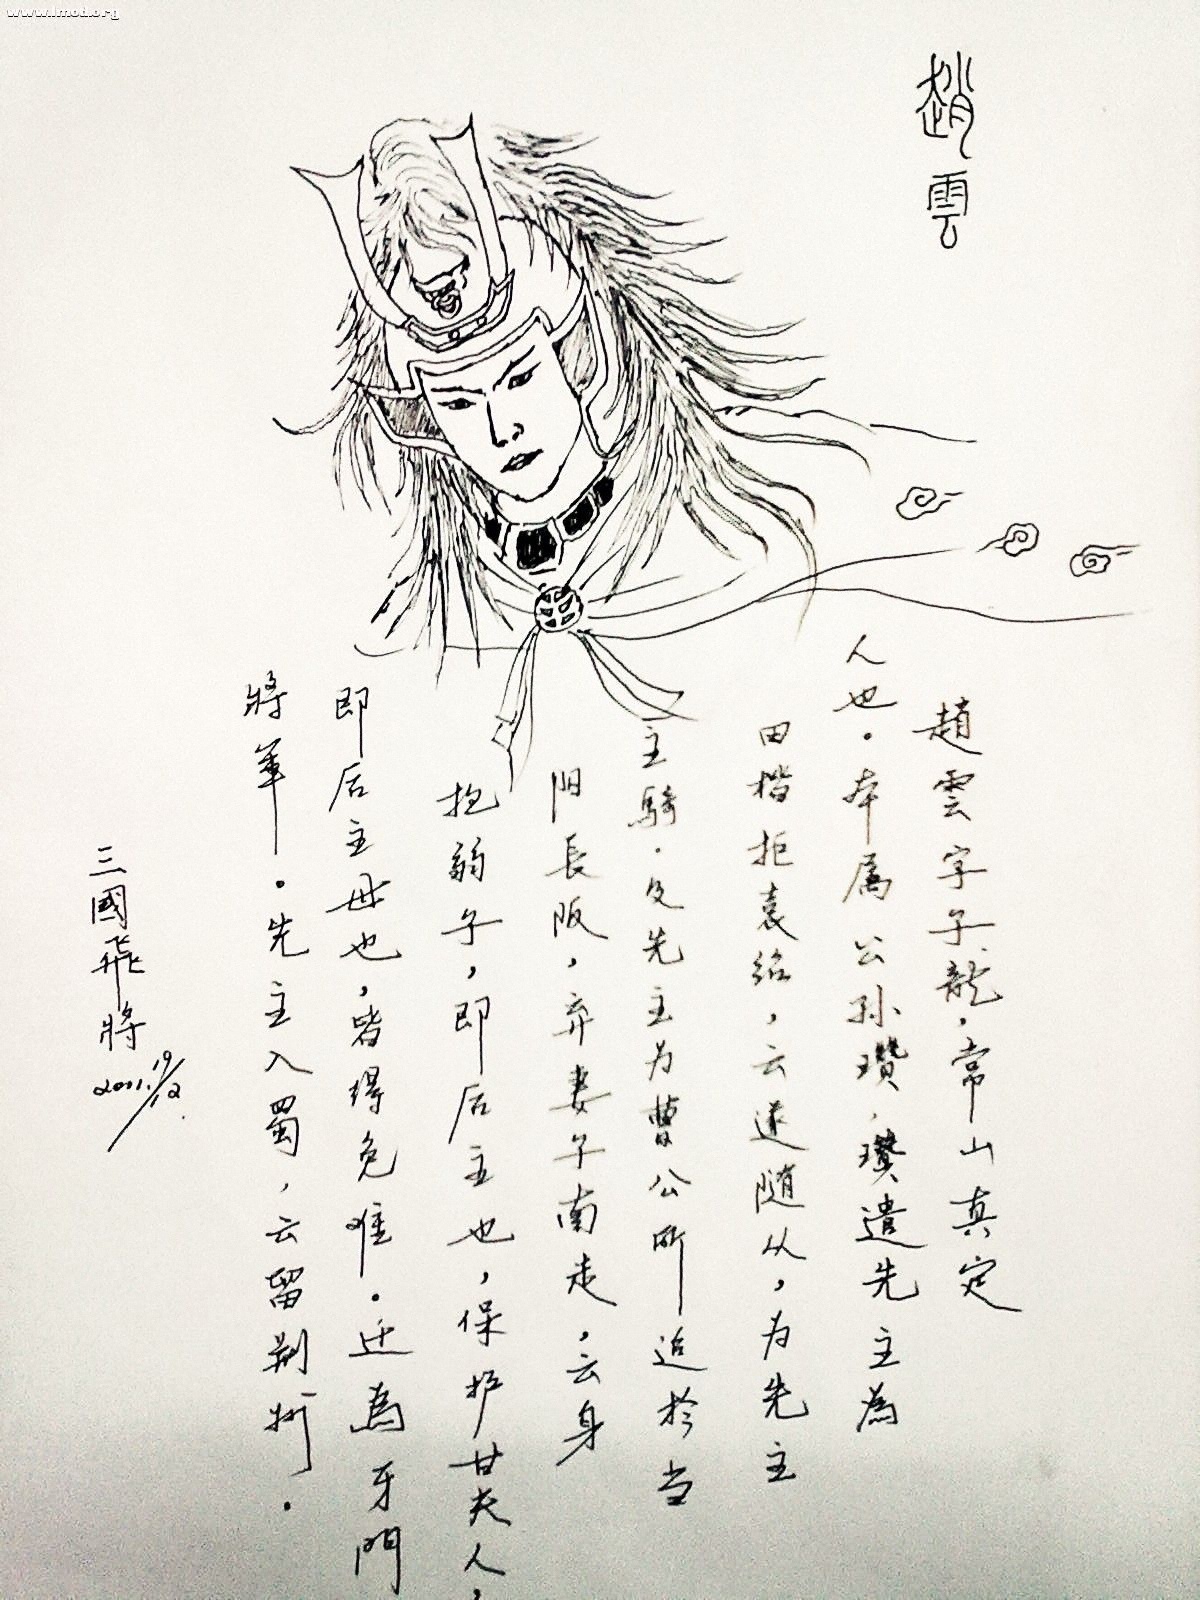 www.lmot.org
趙雲
趙雲字子龍，常山真定
人也。本属公孙瓚，瓚遣先主為
田楷拒袁绍，云遂随从，为先主
主騎．及先主为曹公所追於当
阳長阪，弃妻子南走，云身
抱弱子，即后主也，保护甘夫人，
即后主母也，皆得免难．迁為牙門
將軍。先主入蜀，云留荆州．
三國飛將
2011.12